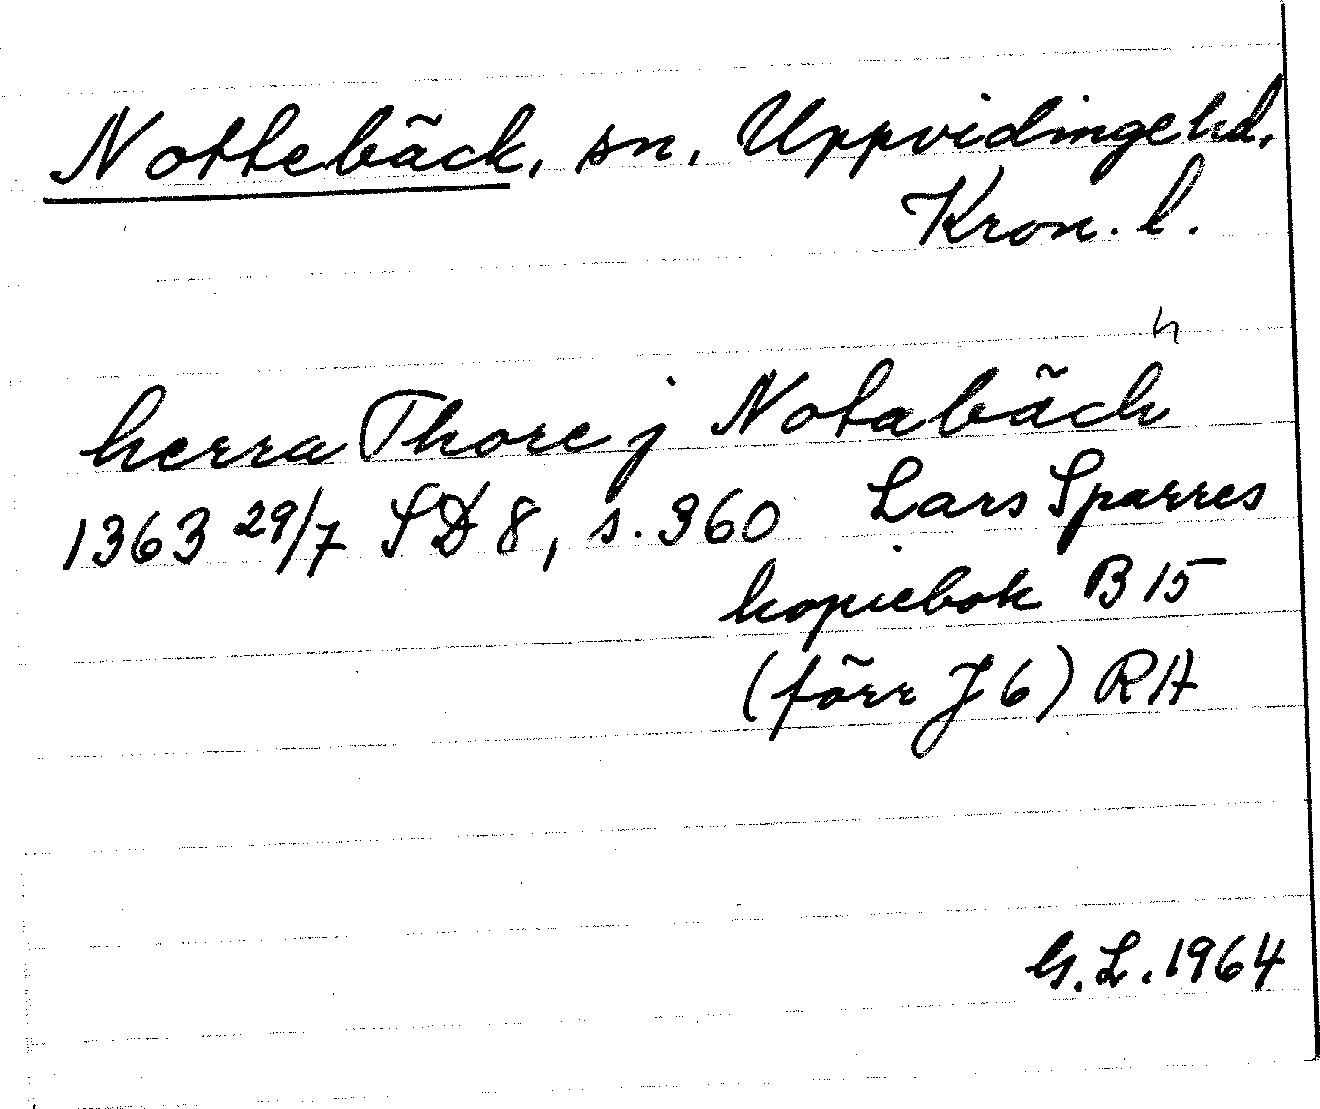 Nottebäck, sn, Uppvidinge hd,
Kron. l.
h
herra Thore j Notabäch
1363 29/7 SD 8, s. 360 Lars Sparres
kopiebok B 15
(förr J 6) RA
G.L. 1964